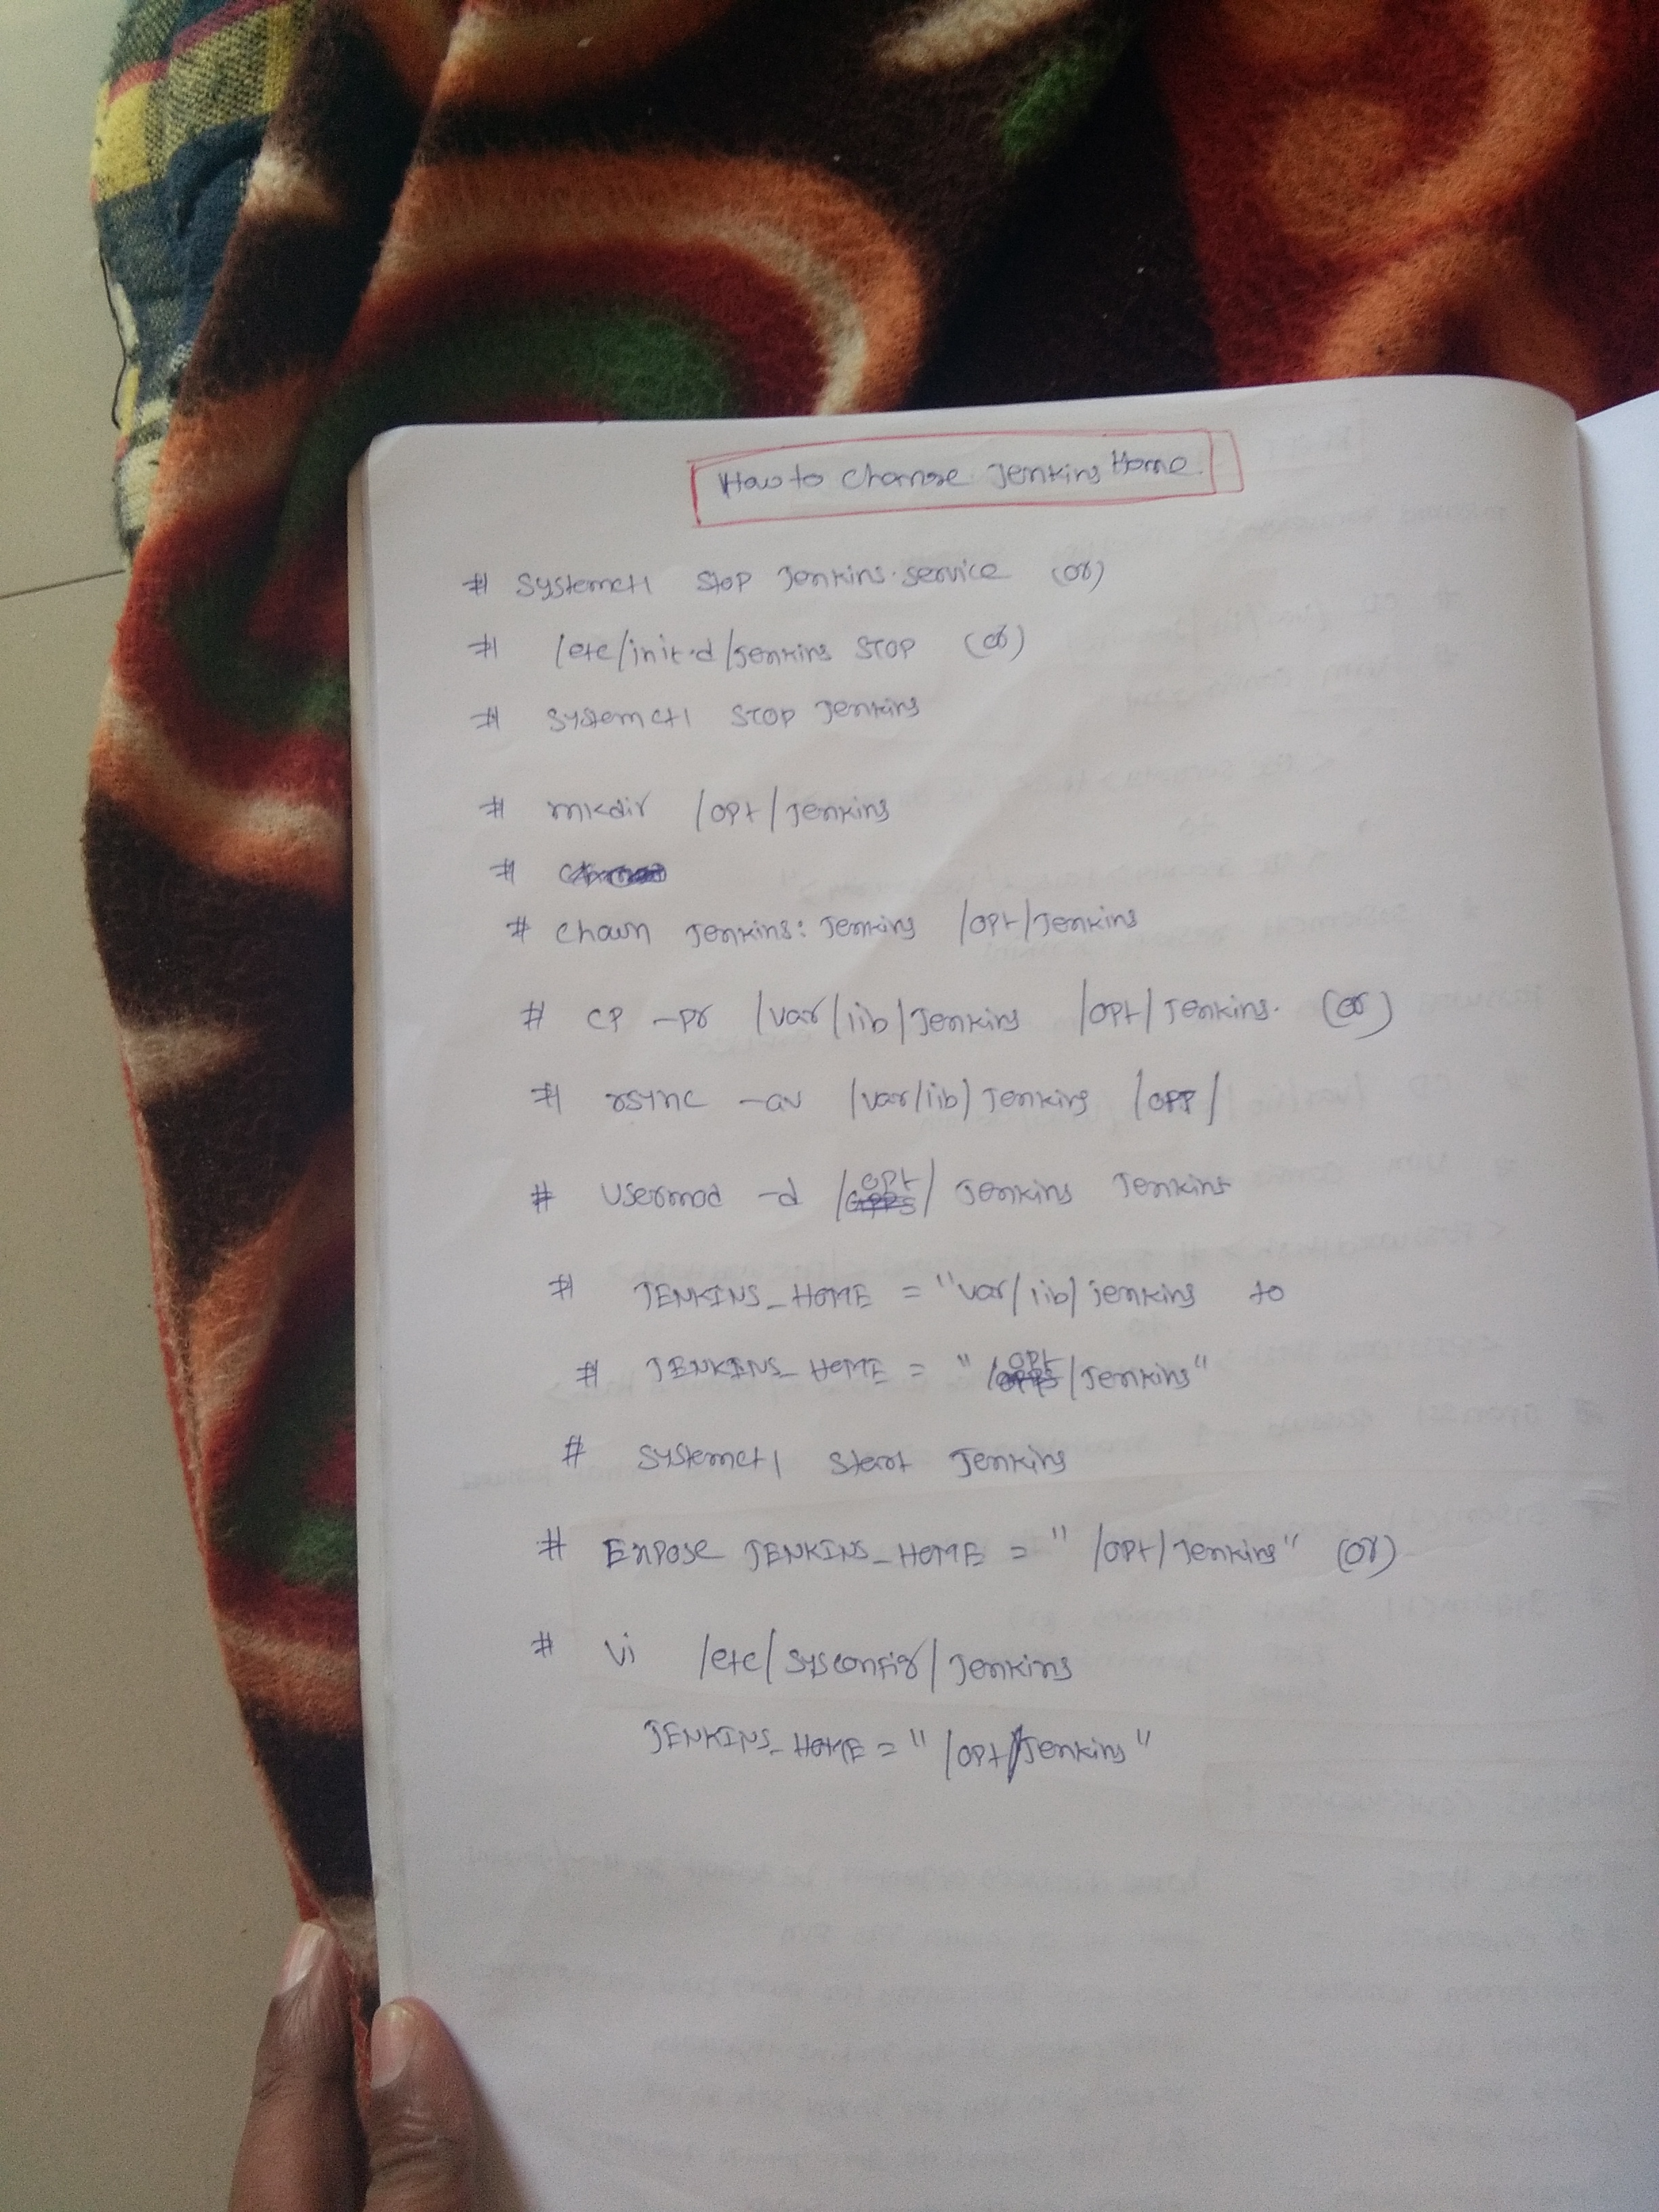 How to change Jenkins Home
# systemctl stop Jenkins.service (or)
# /etc/init.d/Jenkins STOP (or)
# systemctl STOP Jenkins
# mkdir /opt/Jenkins
#
# chown Jenkins:Jenkins /opt/Jenkins
# cp -pr /var/lib/Jenkins /opt/Jenkins. (or)
# rsync -av /var/lib/Jenkins /opp/
# usermod -d /opt/Jenkins Jenkins
# JENKINS_HOME = "var/lib/jenkins to
# JENKINS_HOME = "/opt/Jenkins"
# systemctl start Jenkins
# Expose JENKINS_HOME = "/opt/Jenkins" (or)
# vi /etc/sysconfig/Jenkins
JENKINS_HOME = "/opt/Jenkins"